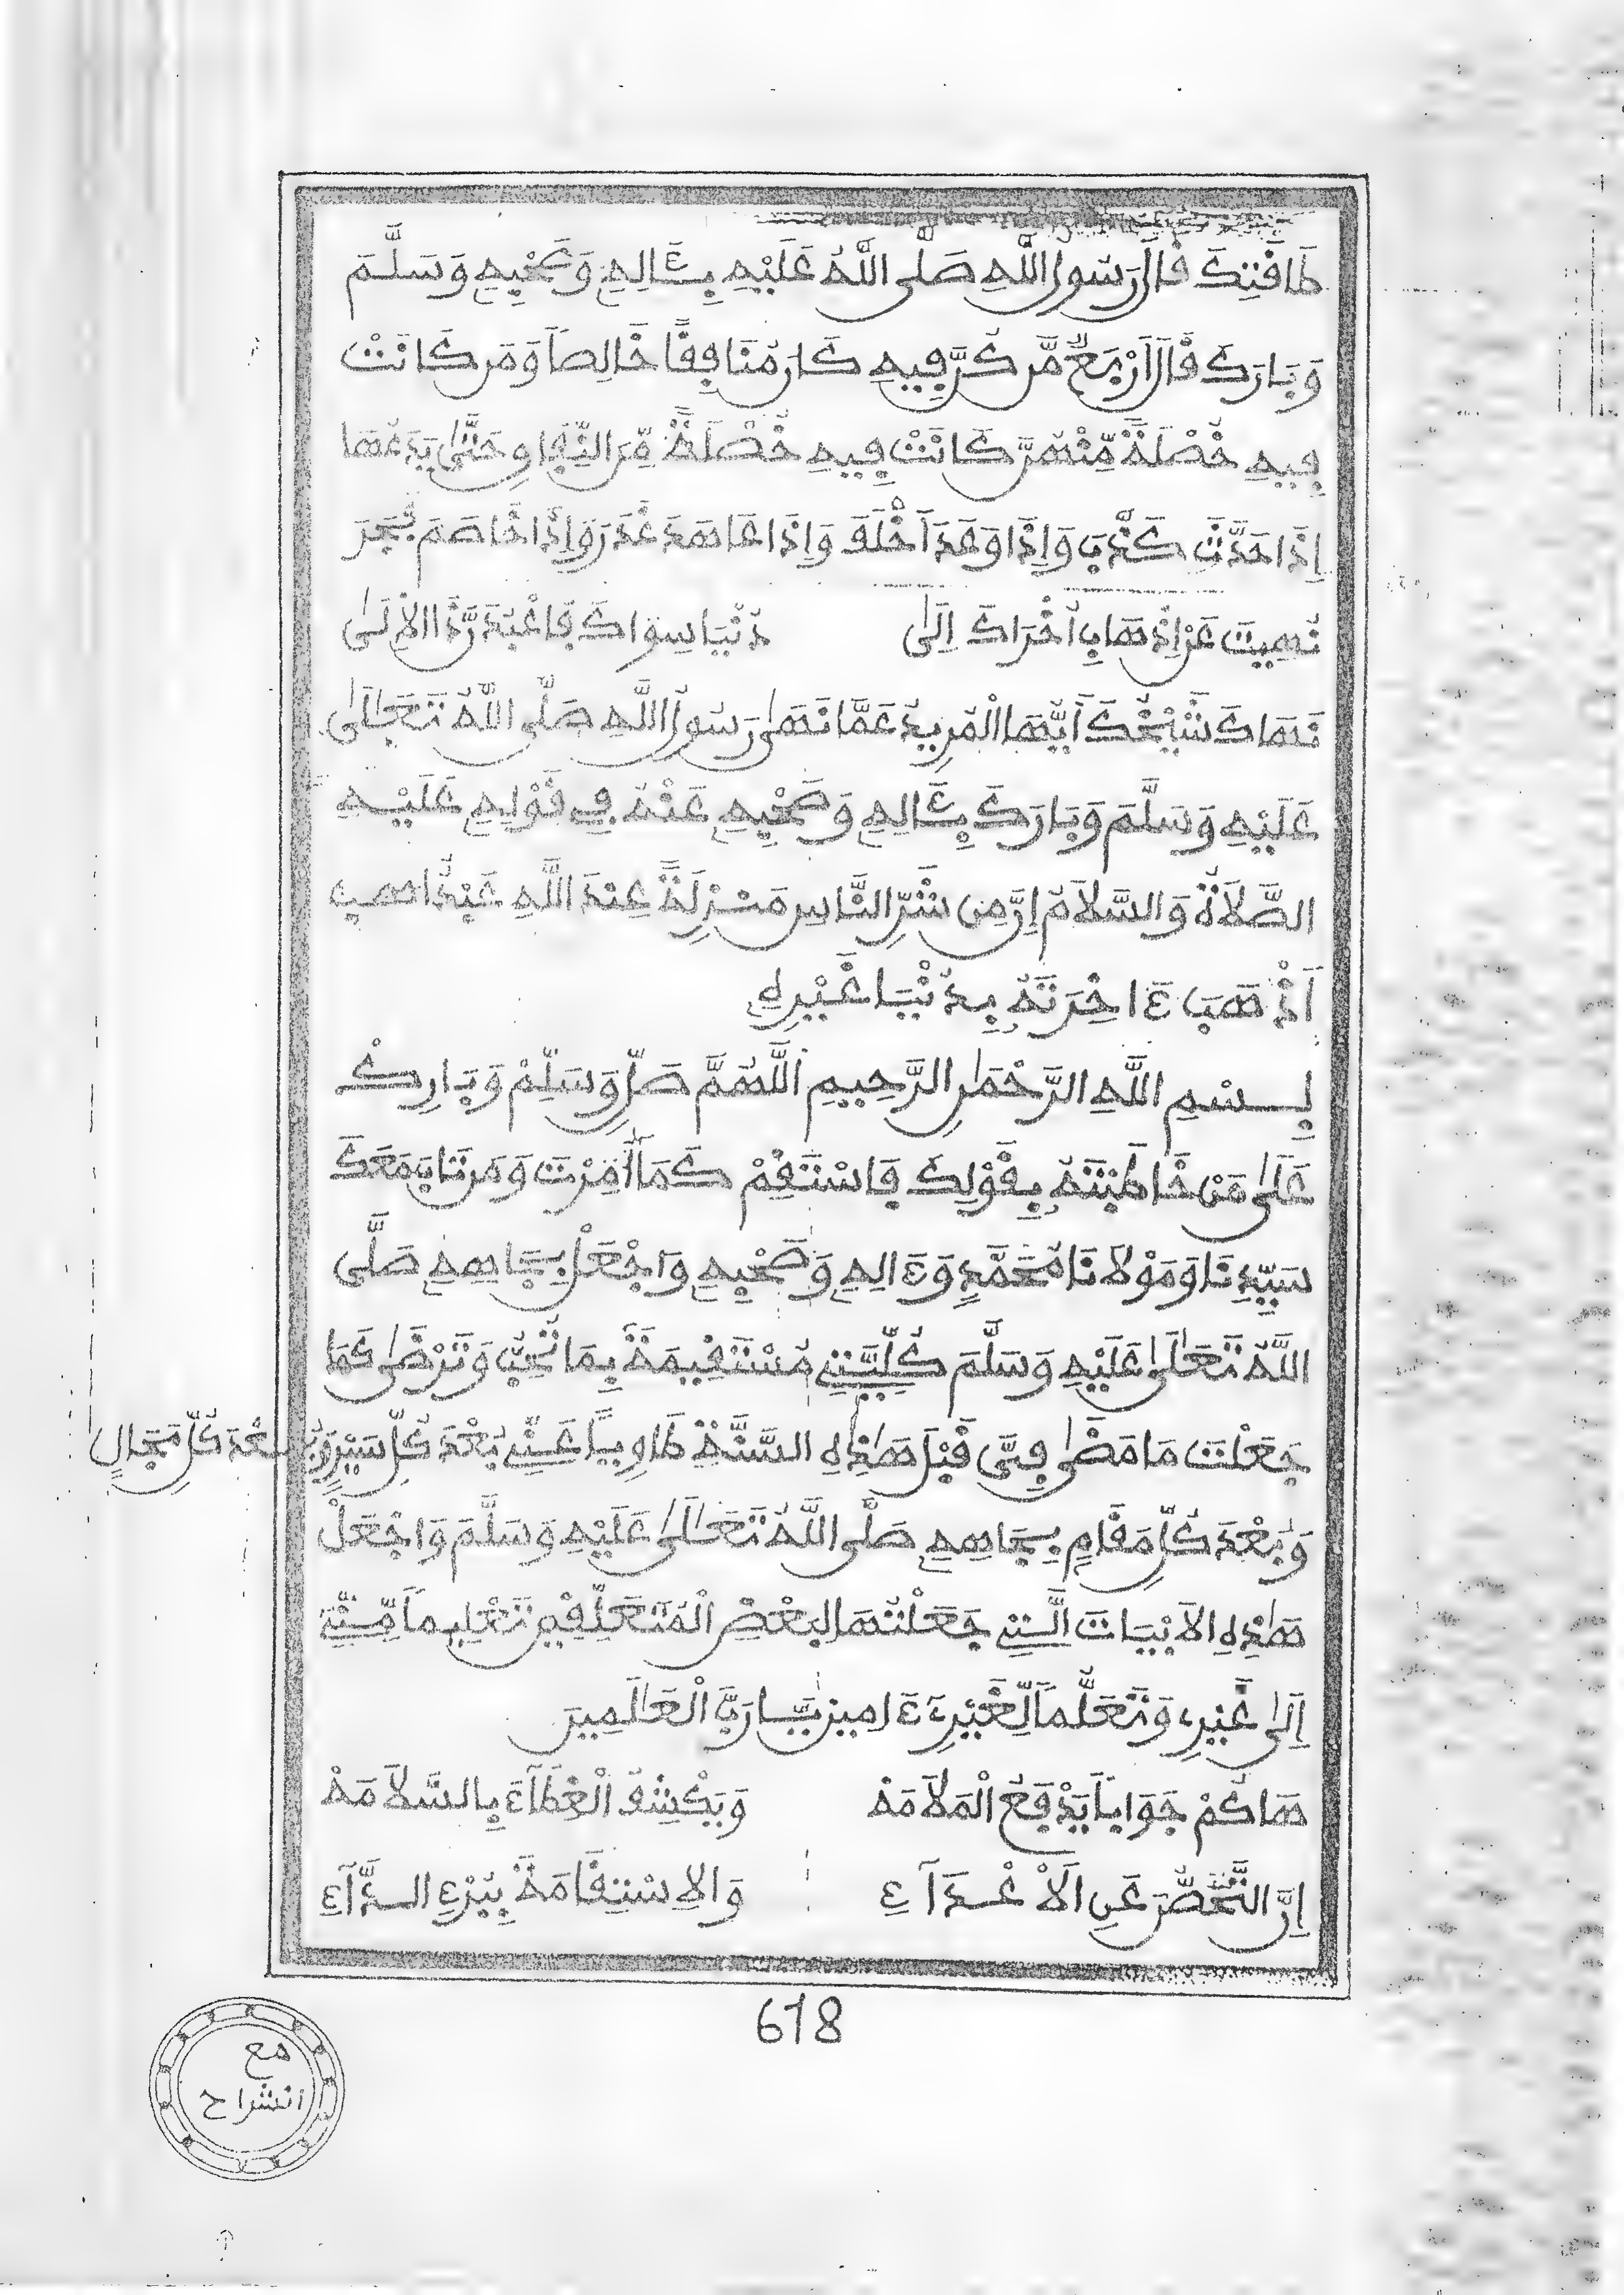 طَافَتِكَ فَالَ رَسُولُ اللَّهِ صَلَّى اللَّهُ عَلَيْهِ بِـَٔالِهِ وَصَحْبِهِ وَسَلَّمَ
وَبَارَكَ فَالَ أَرْبَعٌ مَّن كُنَّ فِيهِ كَانَ مُنَافِقًا خَالِصًا وَمَن كَانَتْ
فِيهِ خَصْلَةٌ مِّنْهُنَّ كَانَتْ فِيهِ خَصْلَةٌ مِّنَ النِّفَاقِ حَتَّى يَدَعَهَا
إِذَا حَدَّثَ كَذَبَ وَإِذَا وَعَدَ أَخْلَفَ وَإِذَا عَاهَدَ غَدَرَ وَإِذَا خَاصَمَ فَجَرَ
نُهِيتَ عَنْ إِذْهَابِ أُخْرَاكَ إِلَى دُنْيَا سِوَاكَ فَاعْبُدَنْ ذَا الْإِلَى
نَهَاكَ شَيْخُكَ أَيُّهَا الْمُرِيدُ عَمَّا نَهَى رَسُولُ اللَّهِ صَلَّى اللَّهُ تَعَالَى
عَلَيْهِ وَسَلَّمَ وَبَارَكَ بِـَٔالِهِ وَصَحْبِهِ عَنْهُ فِي قَوْلِهِ عَلَيْهِ
الصَّلَاةُ وَالسَّلَامُ إِنَّ مِن شَرِّ النَّاسِ مَنْزِلَةً عِندَ اللَّهِ عَبْدًا
أَذْهَبَ ءَاخِرَتَهُ بِدُنْيَا غَيْرِهِ
بِسْمِ اللَّهِ الرَّحْمَٰنِ الرَّحِيمِ اللَّهُمَّ صَلِّ وَسَلِّمْ وَبَارِكْ
عَلَى مَنْ خَاطَبْتَهُ بِقَوْلِكَ فَاسْتَقِمْ كَمَا أُمِرْتَ وَمَن تَابَ مَعَكَ
سَيِّدِنَا وَمَوْلَانَا مُحَمَّدٍ وَءَالِهِ وَصَحْبِهِ وَاجْعَلْ بِجَاهِهِ صَلَّى
اللَّهُ تَعَالَى عَلَيْهِ وَسَلَّمَ كُلِّيَّتِي مُسْتَقِيمَةً بِمَا تُحِبُّ وَتَرْضَى كَمَا
جَعَلْتَ مَا مَضَى فِيَّ قَبْلَ هَٰذِهِ السَّنَةِ طَاوِيًا عَنِّي بُعْدَ كُلِّ سَيْرٍ وَبُعْدَ كُلِّ مَجَالٍ
وَبُعْدَ كُلِّ مَقَامٍ بِجَاهِهِ صَلَّى اللَّهُ تَعَالَى عَلَيْهِ وَسَلَّمَ وَاجْعَلْ
هَٰذِهِ الْأَبْيَاتَ الَّتِي جَعَلْتُهَا لِبَعْضِ الْمُتَعَلِّقِينَ تَعْلِيمًا مِّنِّي
إِلَى غَيْرِي وَتَعَلُّمًا لِّغَيْرِي ءَامِين يَا رَبَّ الْعَالَمِينَ
هَاكُمْ جَوَابًا يَدْفَعُ الْمَلَامَهْ وَيَكْشِفُ الْغِطَاءَ بِالسَّلَامَهْ
إِنَّ التَّحَصُّنَ عَنِ الْأَعْدَاءِ وَالِاسْتِقَامَةَ بِبُرْءِ الدَّاءِ
678
مع
انشراح